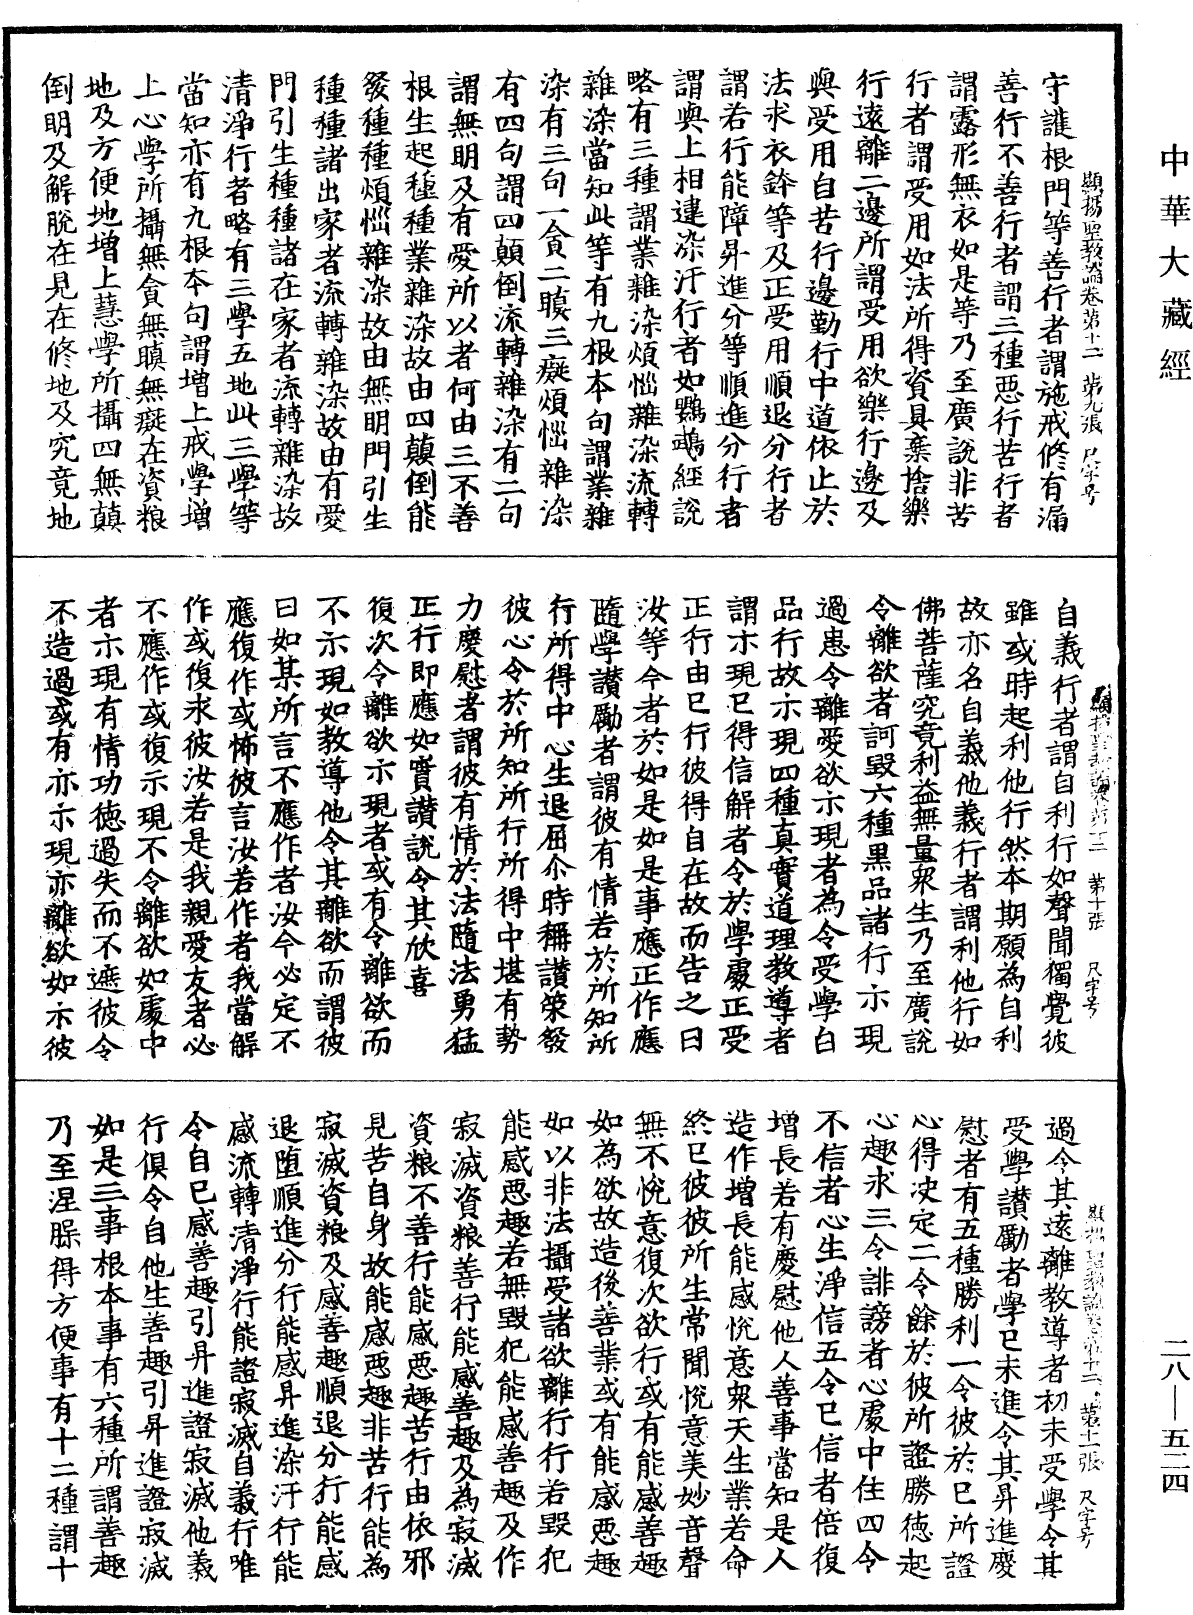 中華大藏經
顯揚聖教論卷第十二 第九張 尺字号
守護根門等善行者謂施戒修有漏
善行不善行者謂三種惡行苦行者
謂露形無衣如是等乃至廣說非苦
行者謂受用如法所得資具棄捨樂
行遠離二邊所謂受用欲樂行邊及
與受用自苦行邊勤行中道依止於
法求衣鉢等及正受用順退分行者
謂若行能障昇進分等順進分行者
謂與上相違染汙行者如鸚鵡經說
略有三種謂業雜染煩惱雜染流轉
雜染當知此等有九根本句謂業雜
染有三句一貪二瞋三癡煩惱雜染
有四句謂四顛倒流轉雜染有二句
謂無明及有愛所以者何由三不善
根生起種種業雜染故由四顛倒能
發種種煩惱雜染故由無明門引生
種種諸出家者流轉雜染故由有愛
門引生種種諸在家者流轉雜染故
清淨行者略有三學五地此三學等
當知亦有九根本句謂增上戒學增
上心學所攝無貪無瞋無癡在資粮
地及方便地增上慧學所攝四無顛
倒明及解脫在見在修地及究竟地
顯揚聖教論卷第十二 第十張 尺字号
自義行者謂自利行如聲聞獨覺彼
雖或時起利他行然本期願為自利
故亦名自義他義行者謂利他行如
佛菩薩究竟利益無量眾生乃至廣說
令離欲者訶毀六種黑品諸行示現
過患令離愛欲示現者為令受學白
品行故示現四種真實道理教導者
謂示現已得信解者令於學處正受
正行由已行彼得自在故而告之曰
汝等今者於如是如是事應正作應
隨學讚勵者謂彼有情若於所知所
行所得中心生退屈尒時稱讚策發
彼心令於所知所行所得中堪有勢
力慶慰者謂彼有情於法隨法勇猛
正行即應如實讚說令其欣喜
復次令離欲示現者或有令離欲而
不示現如教導他令其離欲而謂彼
曰如某所言不應作者汝今必定不
應復作或怖彼言汝若作者我當解
作或復求彼汝若是我親愛友者必
不應作或復示現不令離欲如處中
者示現有情功德過失而不遮彼令
不造過或有亦示現亦離欲如示彼
顯揚聖教論卷第十二 第十一張 尺字号
過令其遠離教導者初未受學令其
受學讚勵者學已未進令其昇進慶
慰者有五種勝利一令彼於已所證
心得決定二令餘於彼所證勝德起
心趣求三令誹謗者心處中住四令
不信者心生淨信五令已信者倍復
增長若有慶慰他人善事當知是人
造作增長能感悅意眾天生業若命
終已彼彼所生常聞悅意美妙音聲
無不悅意復次欲行或有能感善趣
如為欲故造後善業或有能感惡趣
如以非法攝受諸欲離行行若毀犯
能感惡趣若無毀犯能感善趣及作
寂滅資粮善行能感善趣及為寂滅
資粮不善行能感惡趣苦行由依邪
見苦自身故能感惡趣非苦行能為
寂滅資粮及感善趣順退分行能感
退墮順進分行能感昇進染汙行能
感流轉清淨行能證寂滅自義行唯
令自已感善趣引昇進證寂滅他義
行俱令自他生善趣引昇進證寂滅
如是三事根本事有六種所謂善趣
乃至涅槃得方便事有十二種謂十
二八—五二四